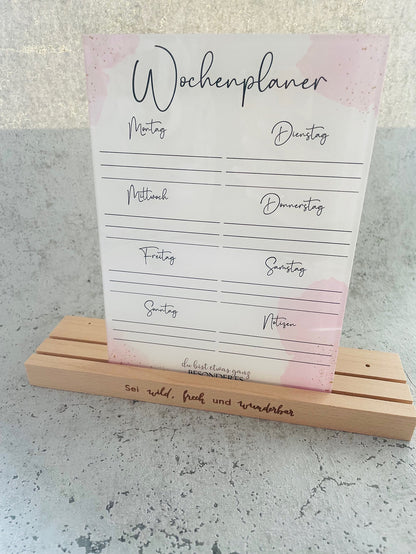 Wochenplaner
Montag Dienstag
Mittwoch Donnerstag
Freitag Samstag
Sonntag Notizen
du bist etwas ganz
BESONDERES
Sei wild, frech und wunderbar